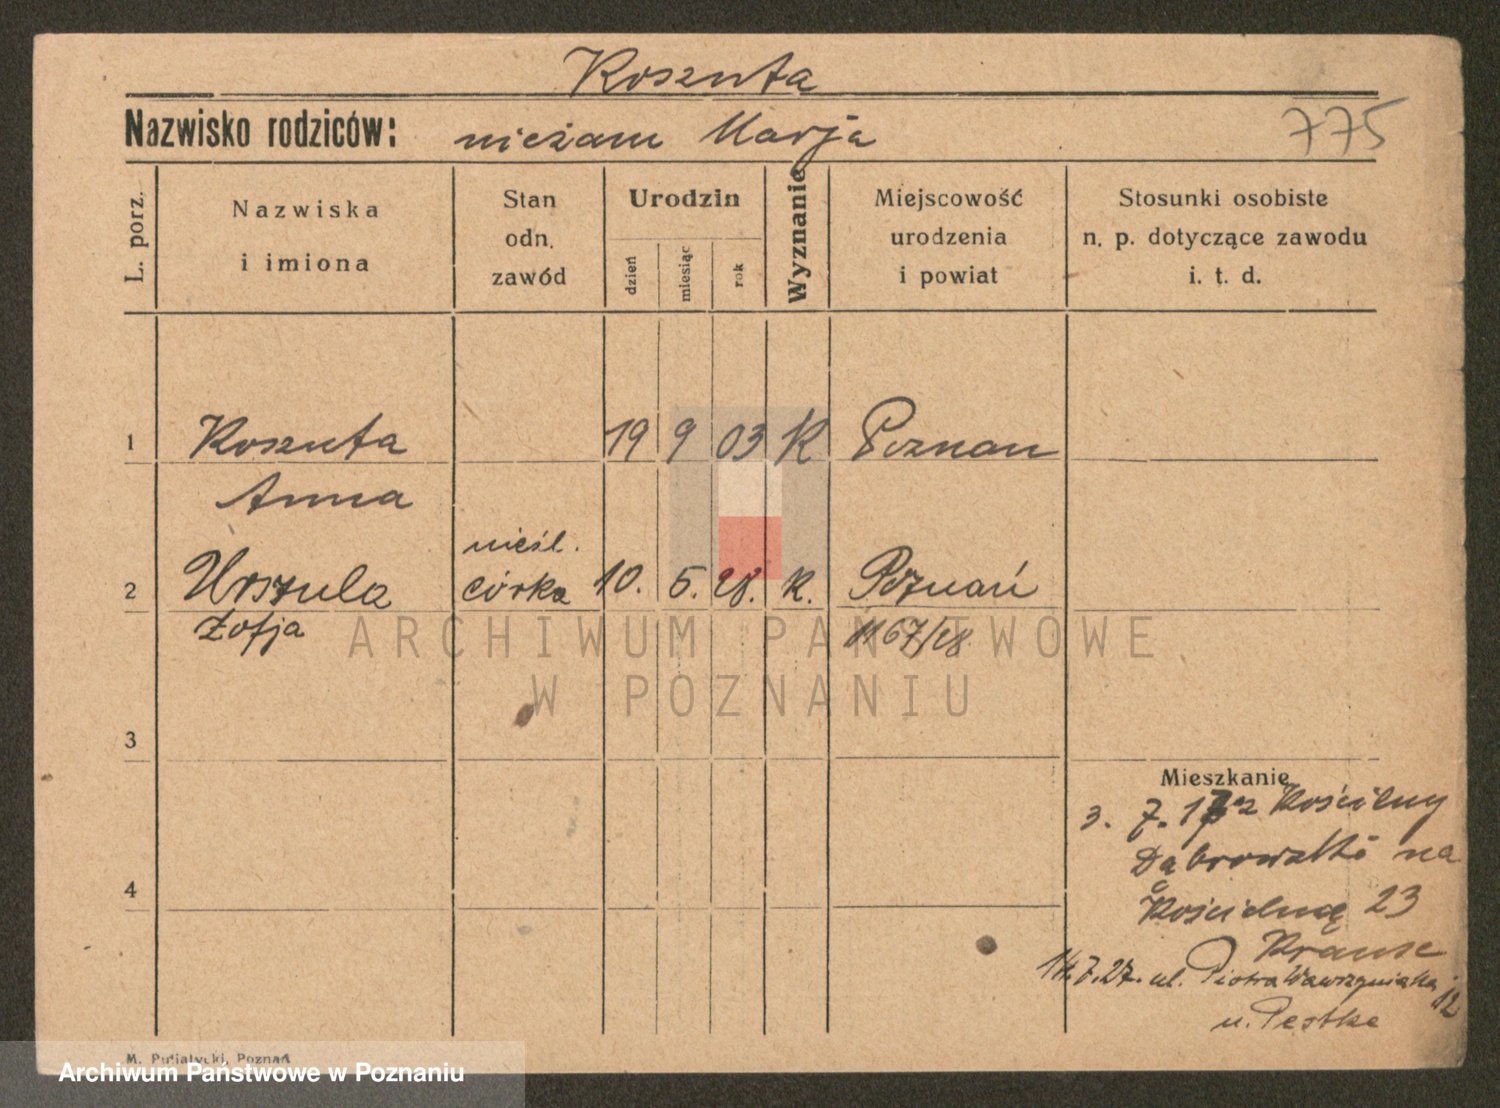 Koszuta
Nazwisko rodziców: niezam Marja
775
L. porz.
Nazwiska
i imiona
Stan
odn.
zawód
Urodzin
dzień
miesiąc
rok
Wyznanie
Miejscowość
urodzenia
i powiat
Stosunki osobiste
n. p. dotyczące zawodu
i. t. d.
1 Koszuta 19 9 03 K Poznan
Anna
nieśl.
2 Urszula córka 10. 5. 28. k. Poznań
Zofja 1167/28
ARCHIWUM PAŃSTWOWE
W POZNANIU
3
Mieszkanie
3. 7. z Kościelny
na
4
Kościelną 23
Krause
14.7.27. ul. Piotra Wawrzyniaka 12
u. Pestke
M. Putiatycki, Poznań
Archiwum Państwowe w Poznaniu